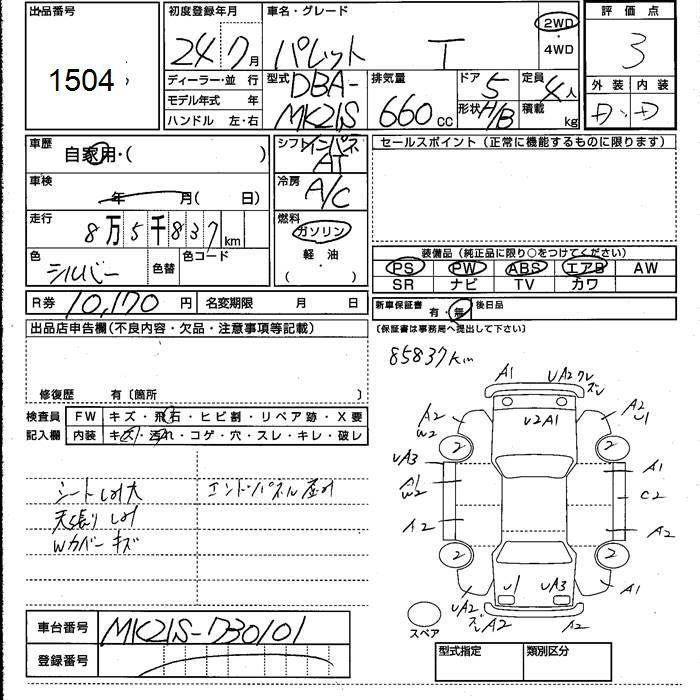 出品番号
1504
初度登録年月
24 7月
車名・グレード
パレット T
2WD
・
4WD
評価点
3
外装 内装
D・D
ディーラー・並 行
モデル年式 年
ハンドル 左・右
型式
DBA-
MK21S
排気量
660cc
ドア 5
形状 H/B
定員 4人
積載 kg
車歴
自家用・( )
車検
年 月( 日)
走行
8万5千837km
色
シルバー
色替
色コード
シフト
インパネ
AT
冷房
A/C
燃料
ガソリン
軽・油
( )
セールスポイント(正常に機能するものに限ります)
装備品(純正品に限り○をつけてください)
PS PW ABS エアB AW
SR ナビ TV カワ
R券 10,170円 名変期限 月 日
新車保証書 有・無 後日品
(保証書は事務局へ提出して下さい)
出品店申告欄(不良内容・欠品・注意事項等記載)
修復歴 有〔箇所 〕
85837km
検査員
記入欄
FW キズ・飛石・ヒビ割・リペア跡・X要
内装 キズ・汚れ・コゲ・穴・スレ・キレ・破レ
シートしみ大
天張りしみ
Wカバーキズ
A1
UA2
A2
W2
U2A1
A2
U1
2
2
UA3
A1
W2
A1
C2
A2
A2
2
2
U1
UA3
A1
UA2
A2
A2
スペア
車台番号 MK21S-730101
登録番号
型式指定 類別区分